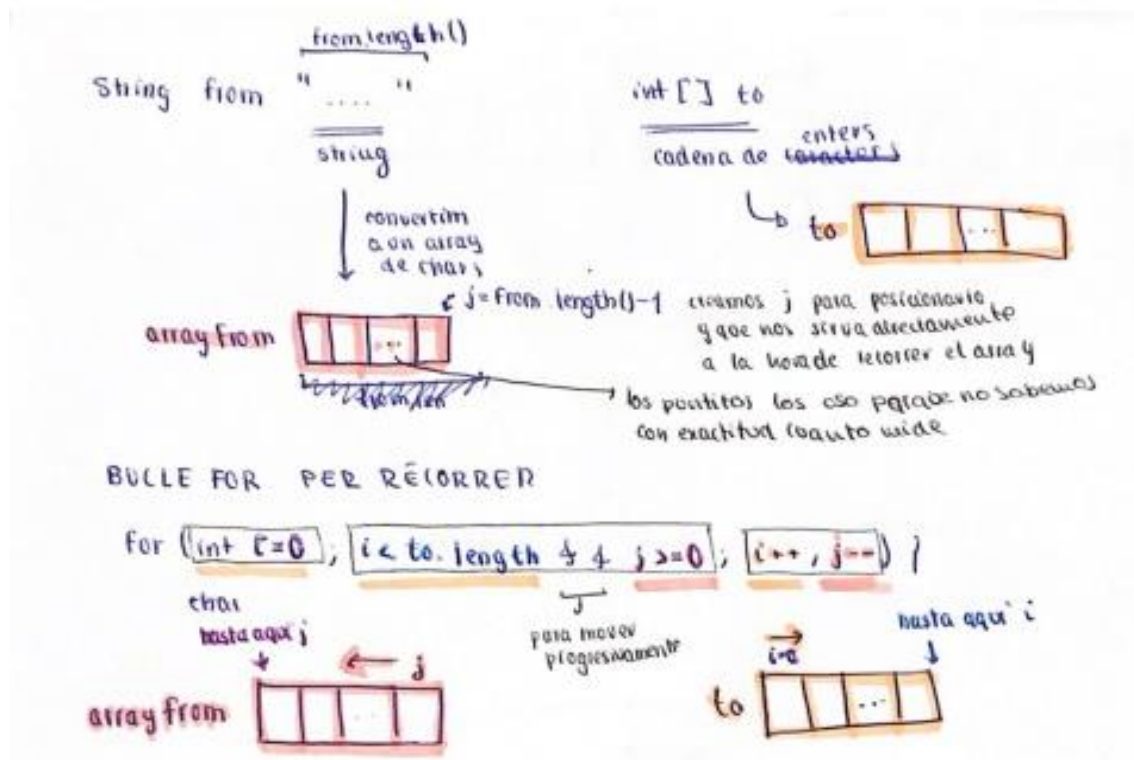 from.length()
String from " .... "
string
int [] to
enters
cadena de caracters
convertim
a un array
de chars
to ...
j=from length()-1
creamos j para posicionarlo
y que nos sirva directamente
a la hora de recorrer el array
array from ...
los puntitos los uso porque no sabemos
con exactitud cuanto mide
BUCLE FOR PER RECORRER
for (int i=0; i < to.length && j >=0; i++, j--) {
char
hasta aquí j
para mover
progresivamente
i=0
hasta aquí i
j
array from ...
to ...